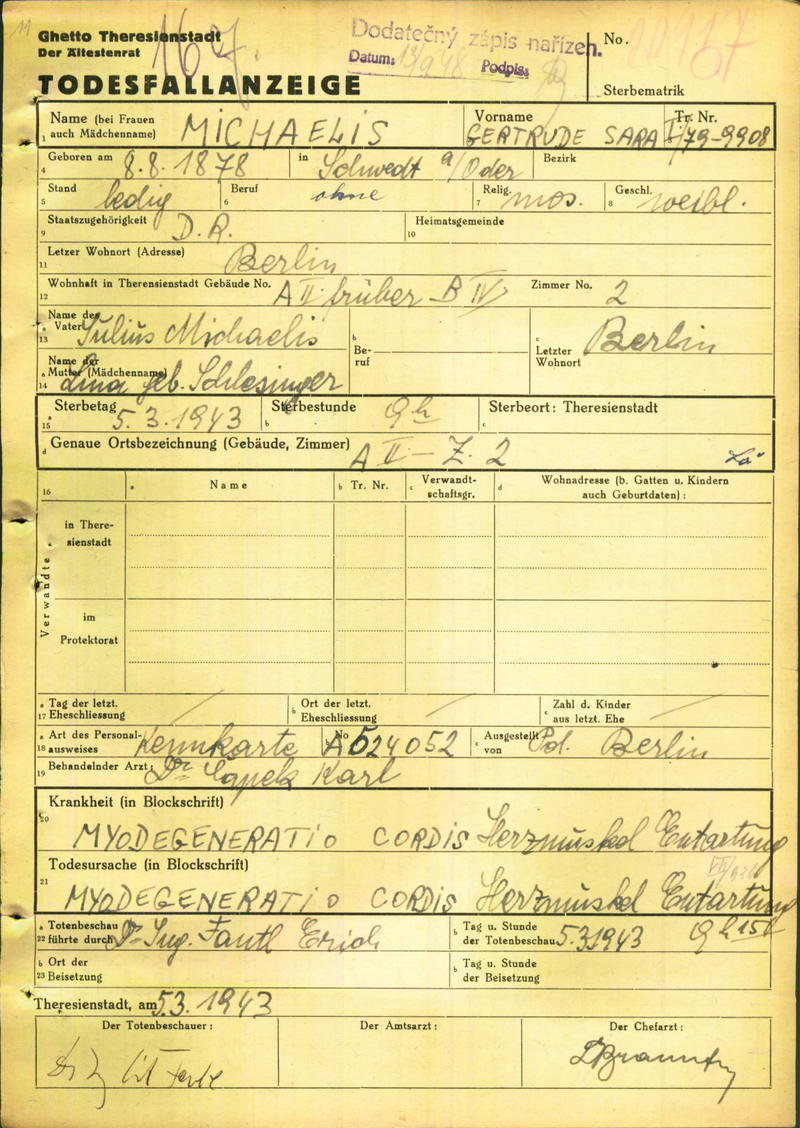 Ghetto Theresienstadt
Der Ältestenrat
TODESFALLANZEIGE
Dodatečný zápis nařízen.
Datum: Podpis:
No.
Sterbematrik
Name (bei Frauen auch Mädchenname) MICHAELIS
Vorname GERTRUDE SARA
Tr. Nr. I/79-9908
Geboren am 8.8.1878 in Schwedt a/Oder Bezirk
Stand ledig Beruf ohne Relig. mos. Geschl. weibl.
Staatszugehörigkeit D.R. Heimatsgemeinde
Letzer Wohnort (Adresse) Berlin
Wohnhaft in Therensienstadt Gebäude No. A II früher B IV Zimmer No. 2
Name des Vaters Julius Michaelis
Name der Mutter (Mädchenname) Lina geb. Schlesinger
Be-ruf
Letzter Wohnort Berlin
Sterbetag 5.3.1943 Sterbestunde 9h Sterbeort: Theresienstadt
Genaue Ortsbezeichnung (Gebäude, Zimmer) A II - Z. 2
16 a Name b Tr. Nr. c Verwandt-schaftsgr. d Wohnadresse (b. Gatten u. Kindern auch Geburtdaten):
Verwandte
in There-sienstadt
im Protektorat
17 a Tag der letzt. Eheschliessung b Ort der letzt. Eheschliessung c Zahl d. Kinder aus letzt. Ehe
18 a Art des Personal-ausweises Kennkarte b No A524052 c Ausgestellt von Pol. Berlin
19 Behandelnder Arzt: Dr Capek Karl
20 Krankheit (in Blockschrift)
MYODEGENERATIO CORDIS Herzmuskel Entartung
21 Todesursache (in Blockschrift)
MYODEGENERATIO CORDIS Herzmuskel Entartung
22 a Totenbeschau führte durch Dr Ing. Fantl Erich b Tag u. Stunde der Totenbeschau 5.3.1943 9h 15
23 b Ort der Beisetzung b Tag u. Stunde der Beisetzung
Theresienstadt, am 5.3.1943
Der Totenbeschauer: Der Amtsarzt: Der Chefarzt: